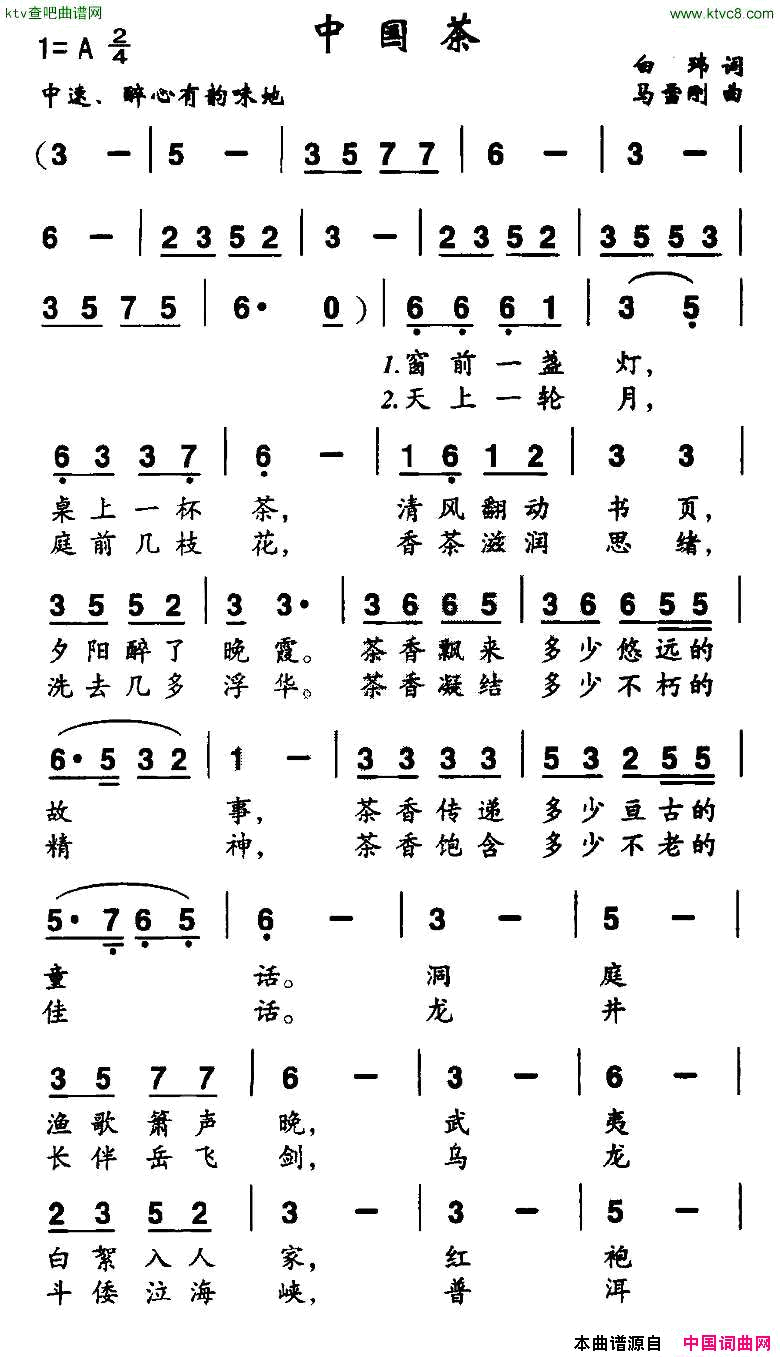 ktv查吧曲谱网
www.ktvc8.com
中国茶
1=A 2/4
白 玮 词
中速、醉心有韵味地
马雪刚 曲
(3 - | 5 - | 3 5 7 7 | 6 - | 3 - |
6 - | 2 3 5 2 | 3 - | 2 3 5 2 | 3 5 5 3 |
3 5 7 5 | 6· 0 ) | 6 6 6 1 | 3 5 |
1.窗前一盏 灯,
2.天上一轮 月,
6 3 3 7 | 6 - | 1 6 1 2 | 3 3 |
桌上一杯 茶, 清风翻动 书页,
庭前几枝 花, 香茶滋润 思绪,
3 5 5 2 | 3 3· | 3 6 6 5 | 3 6 6 5 5 |
夕阳醉了 晚霞。 茶香飘来 多少悠远的
洗去几多 浮华。 茶香凝结 多少不朽的
6· 5 3 2 | 1 - | 3 3 3 3 | 5 3 2 5 5 |
故 事, 茶香传递 多少亘古的
精 神, 茶香饱含 多少不老的
5· 7 6 5 | 6 - | 3 - | 5 - |
童 话。 洞 庭
佳 话。 龙 井
3 5 7 7 | 6 - | 3 - | 6 - |
渔歌箫声 晚, 武 夷
长伴岳飞 剑, 乌 龙
2 3 5 2 | 3 - | 3 - | 5 - |
白絮入人 家, 红 袍
斗倭泣海 峡, 普 洱
本曲谱源自 中国词曲网